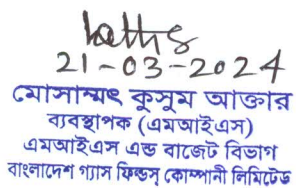 21-03-2024
মোসাম্মৎ কুসুম আক্তার
ব্যবস্থাপক (এমআইএস)
এমআইএস এন্ড বাজেট বিভাগ
বাংলাদেশ গ্যাস ফিল্ডস্ কোম্পানী লিমিটেড